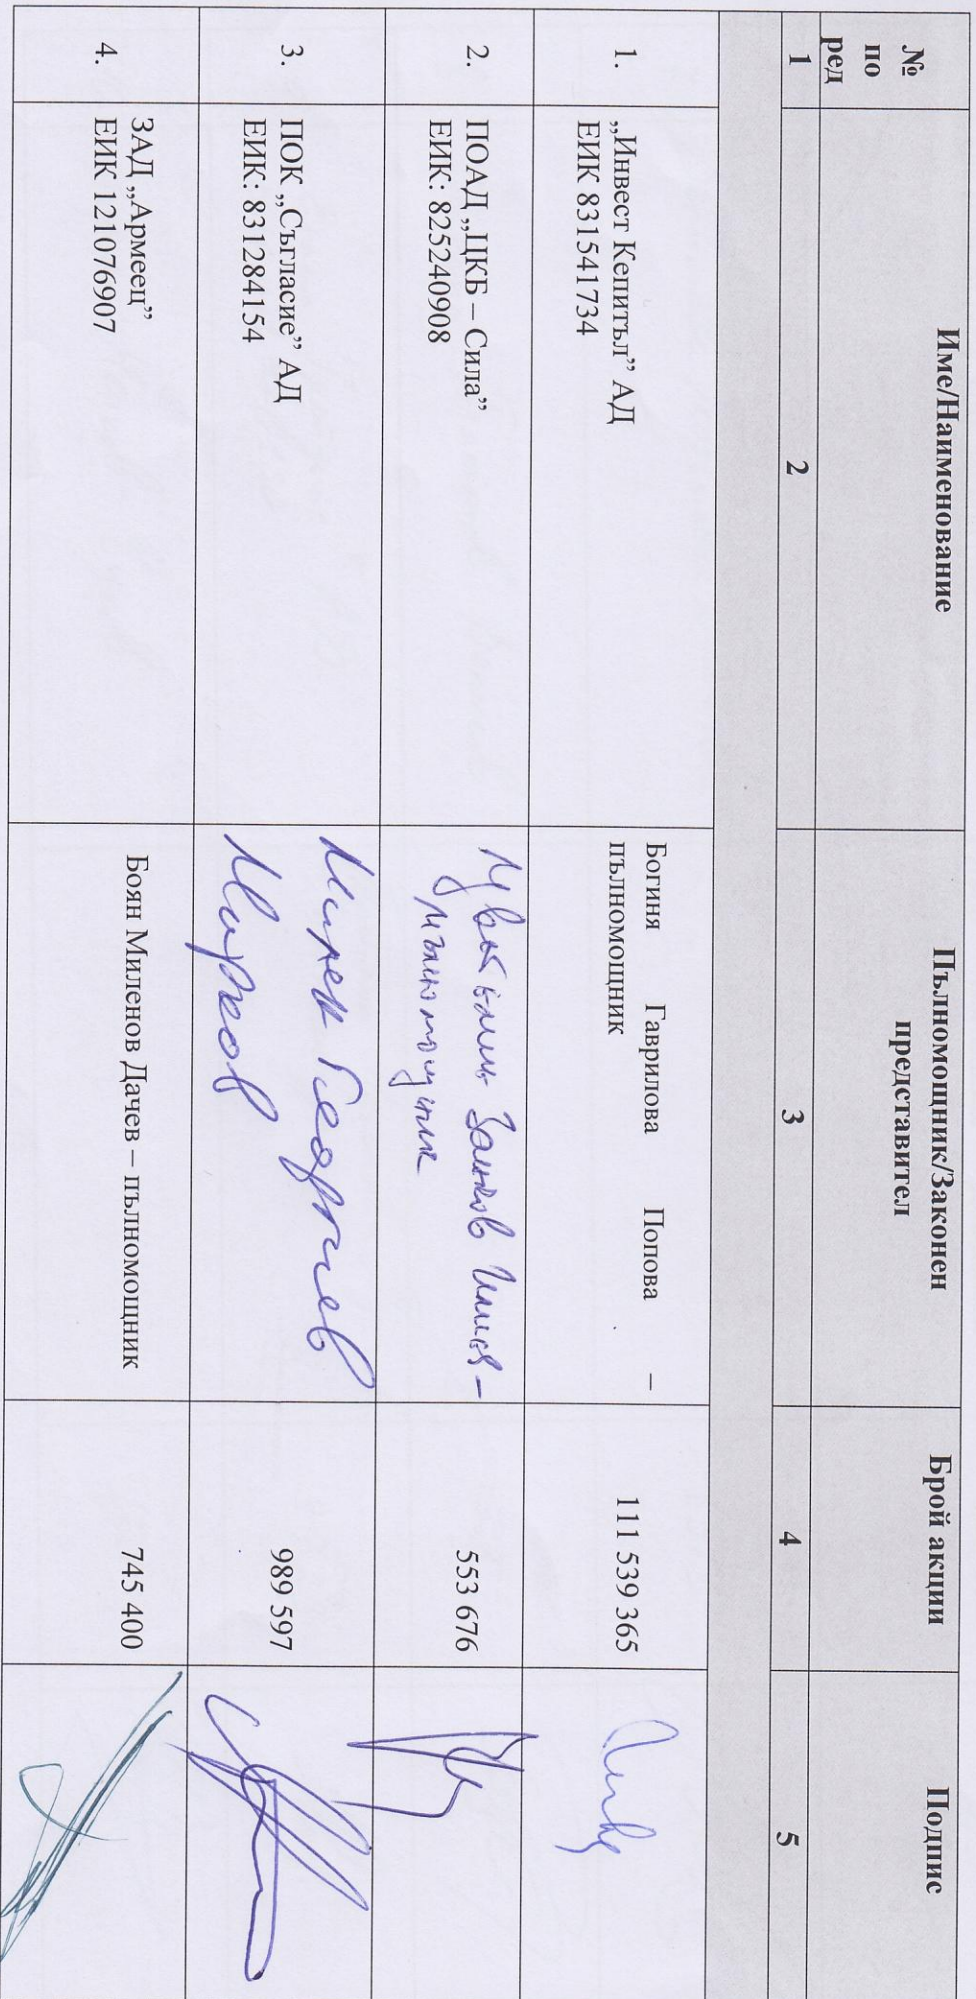 № по ред Име/Наименование Пълномощник/Законен представител Брой акции Подпис
1 2 3 4 5
1. „Инвест Кепитъл” АД
ЕИК 831541734
Богиня Гаврилова Попова –
пълномощник
111 539 365
2. ПОАД „ЦКБ – Сила”
ЕИК: 825240908
Занков –
пълномощник
553 676
3. ПОК „Съгласие” АД
ЕИК: 831284154
Милен Георгиев
Марков
989 597
4. ЗАД „Армеец”
ЕИК 121076907
Боян Миленов Дачев – пълномощник
745 400